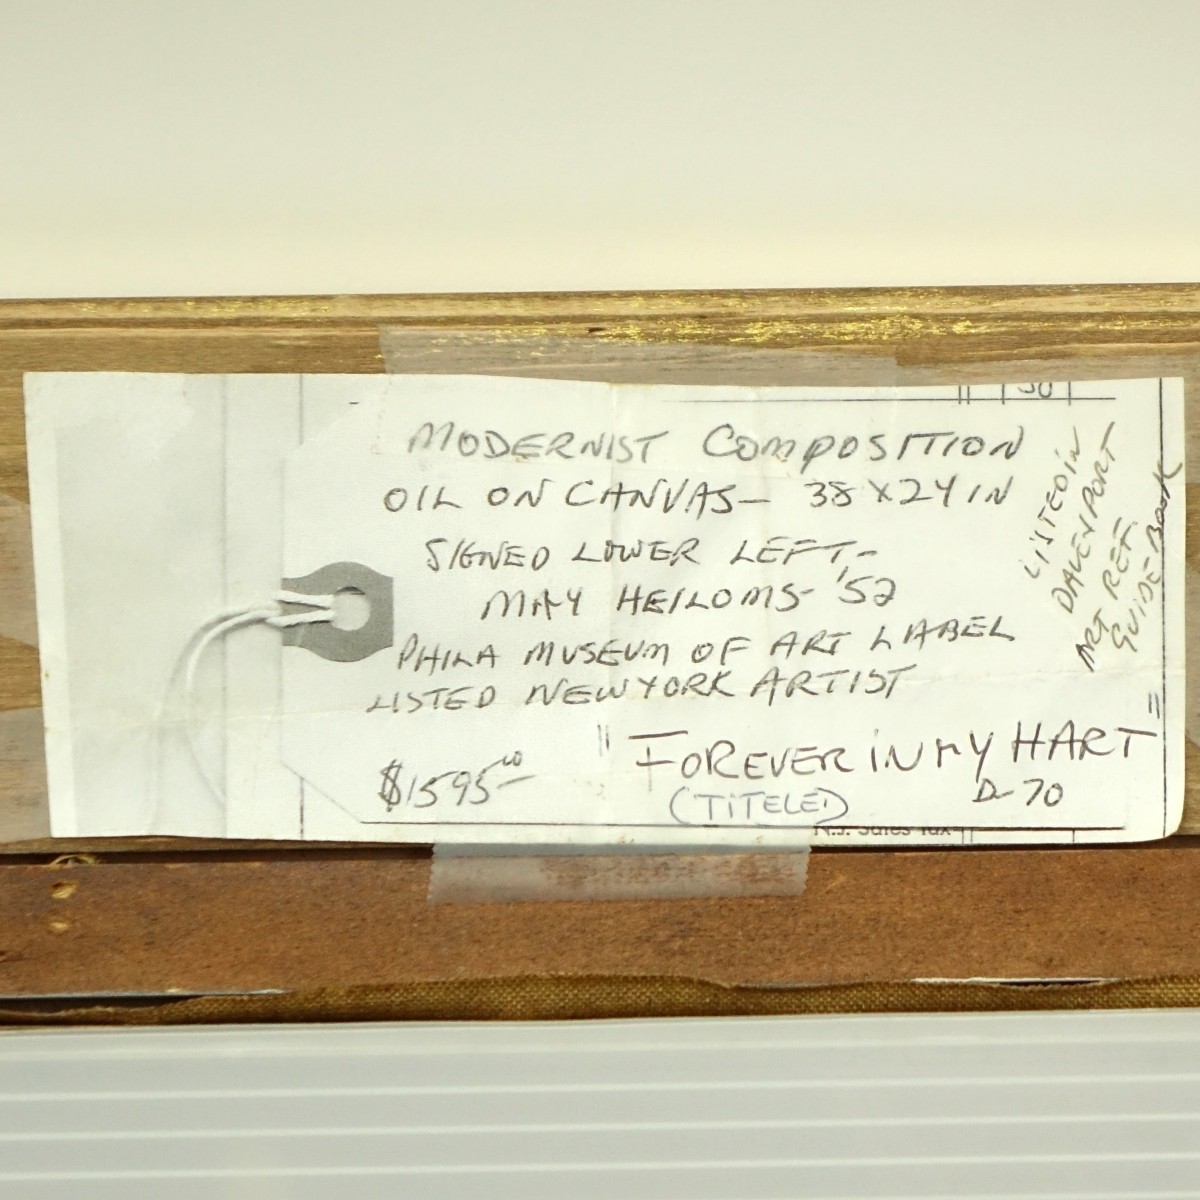 30
MODERNIST COMPOSITION
OIL ON CANVAS - 38 X 24 IN
SIGNED LOWER LEFT -
MAY HEILOMS - '52
PHILA MUSEUM OF ART LABEL
LISTED NEW YORK ARTIST
$1595.00
"FOREVER IN MY HART"
(TITELED)
D-70
LISTED IN
DAVENPORT
ART REF.
GUIDE BOOK
N.J. Sales Tax